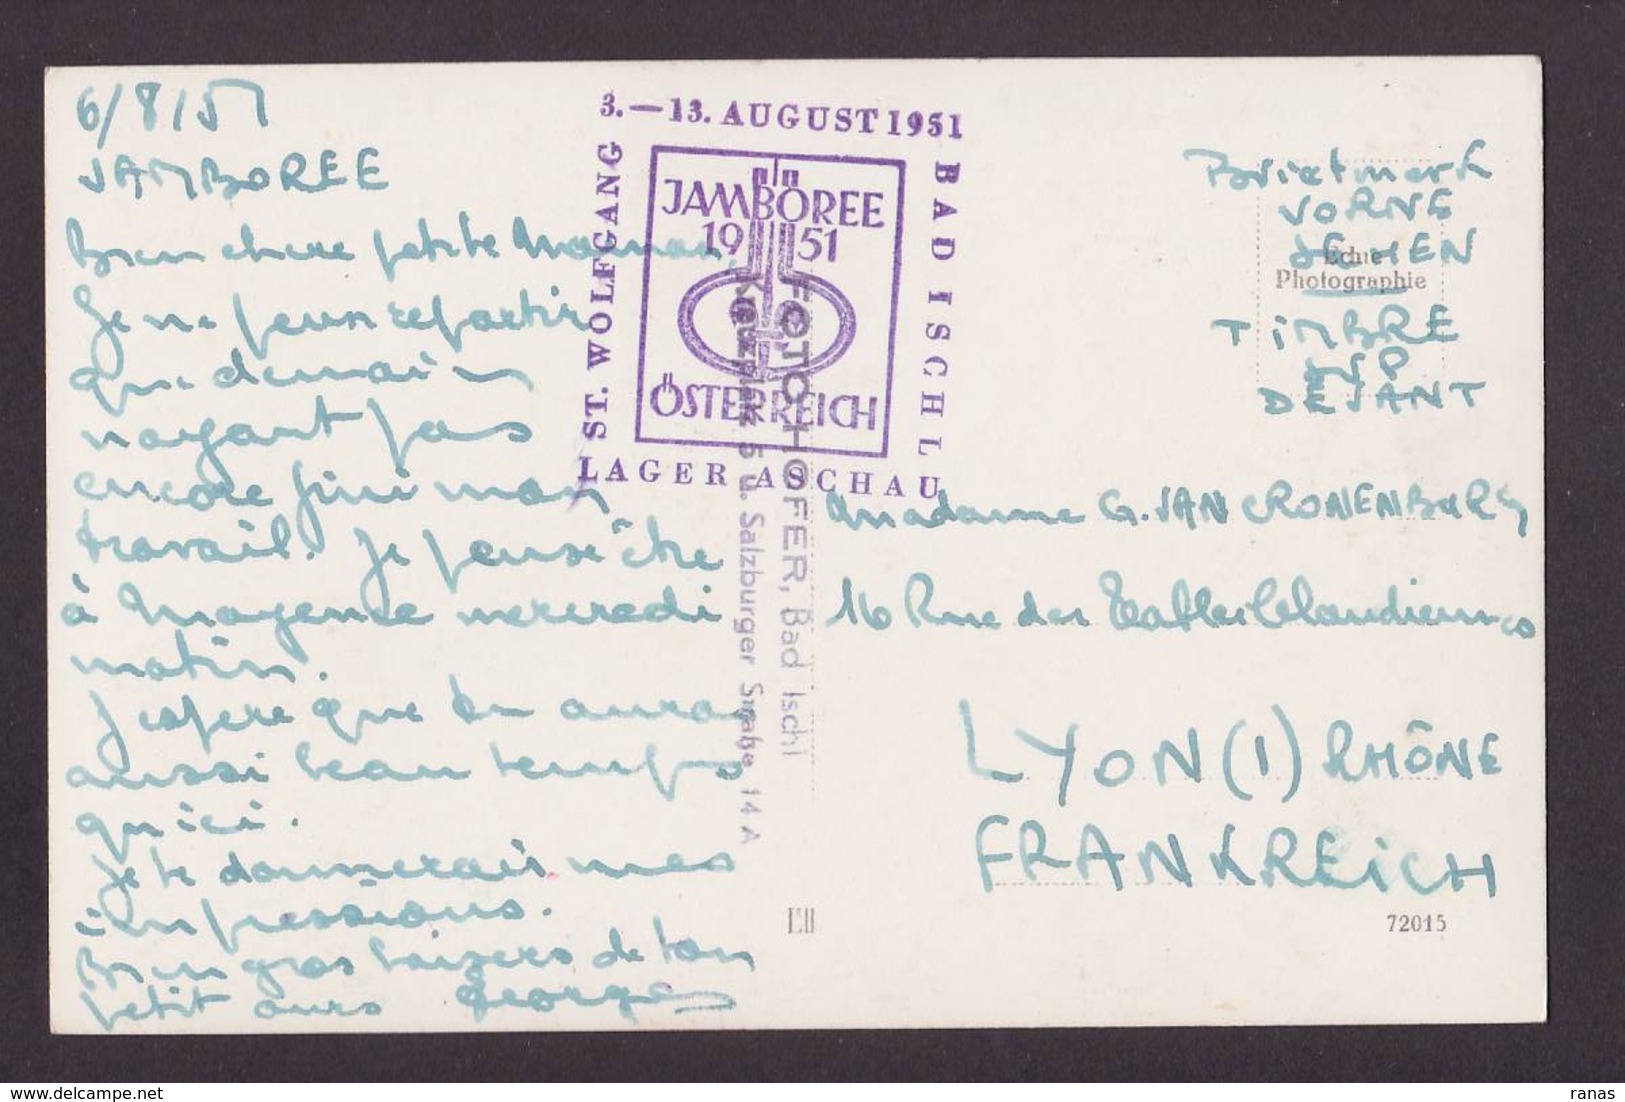 6/8/51
JAMBOREE
Bien chère petite Maman,
Je ne peux repartir
que demain
n'ayant pas
encore fini mon
travail. Je pense être
à Mayence mercredi
matin.
J'espère que tu auras
aussi beau temps
qu'ici.
Je te donnerai mes
impressions.
Bien gros baisers de ton
petit ours Georges
3.—13. AUGUST 1951
ST. WOLFGANG
BAD ISCHL
LAGER ASCHAU
JAMBOREE
1951
ÖSTERREICH
FOTO HOFER, Bad Ischl
Kreuzplatz 5 u. Salzburger Straße 14 A
Brietmark
VORNE
SEHEN
Echte
Photographie
TIMBRE
DEVANT
Madame G. VAN CRONENBURG
16 Rue des Tables Claudiennes
LYON (1) RHÔNE
FRANKREICH
72015
ranas